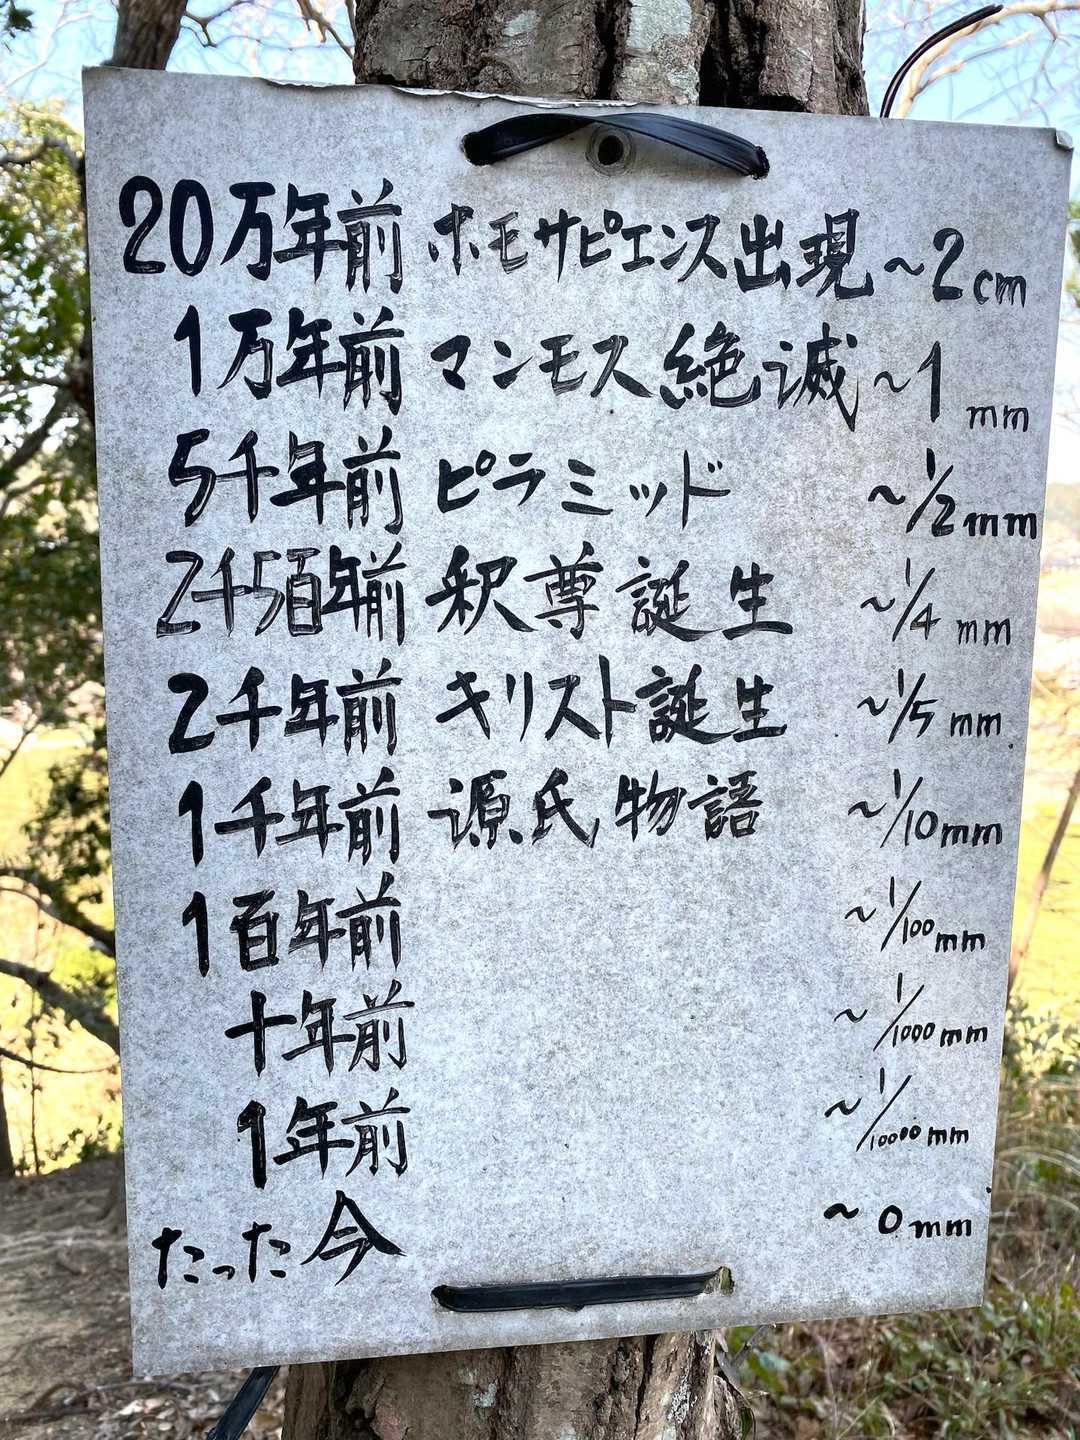 20万年前 ホモサピエンス出現 ~2cm
1万年前 マンモス絶滅 ~1mm
5千年前 ピラミッド ~1/2mm
2千5百年前 釈尊誕生 ~1/4mm
2千年前 キリスト誕生 ~1/5mm
1千年前 源氏物語 ~1/10mm
1百年前 ~1/100mm
十年前 ~1/1000mm
1年前 ~1/10000mm
たった今 ~0mm